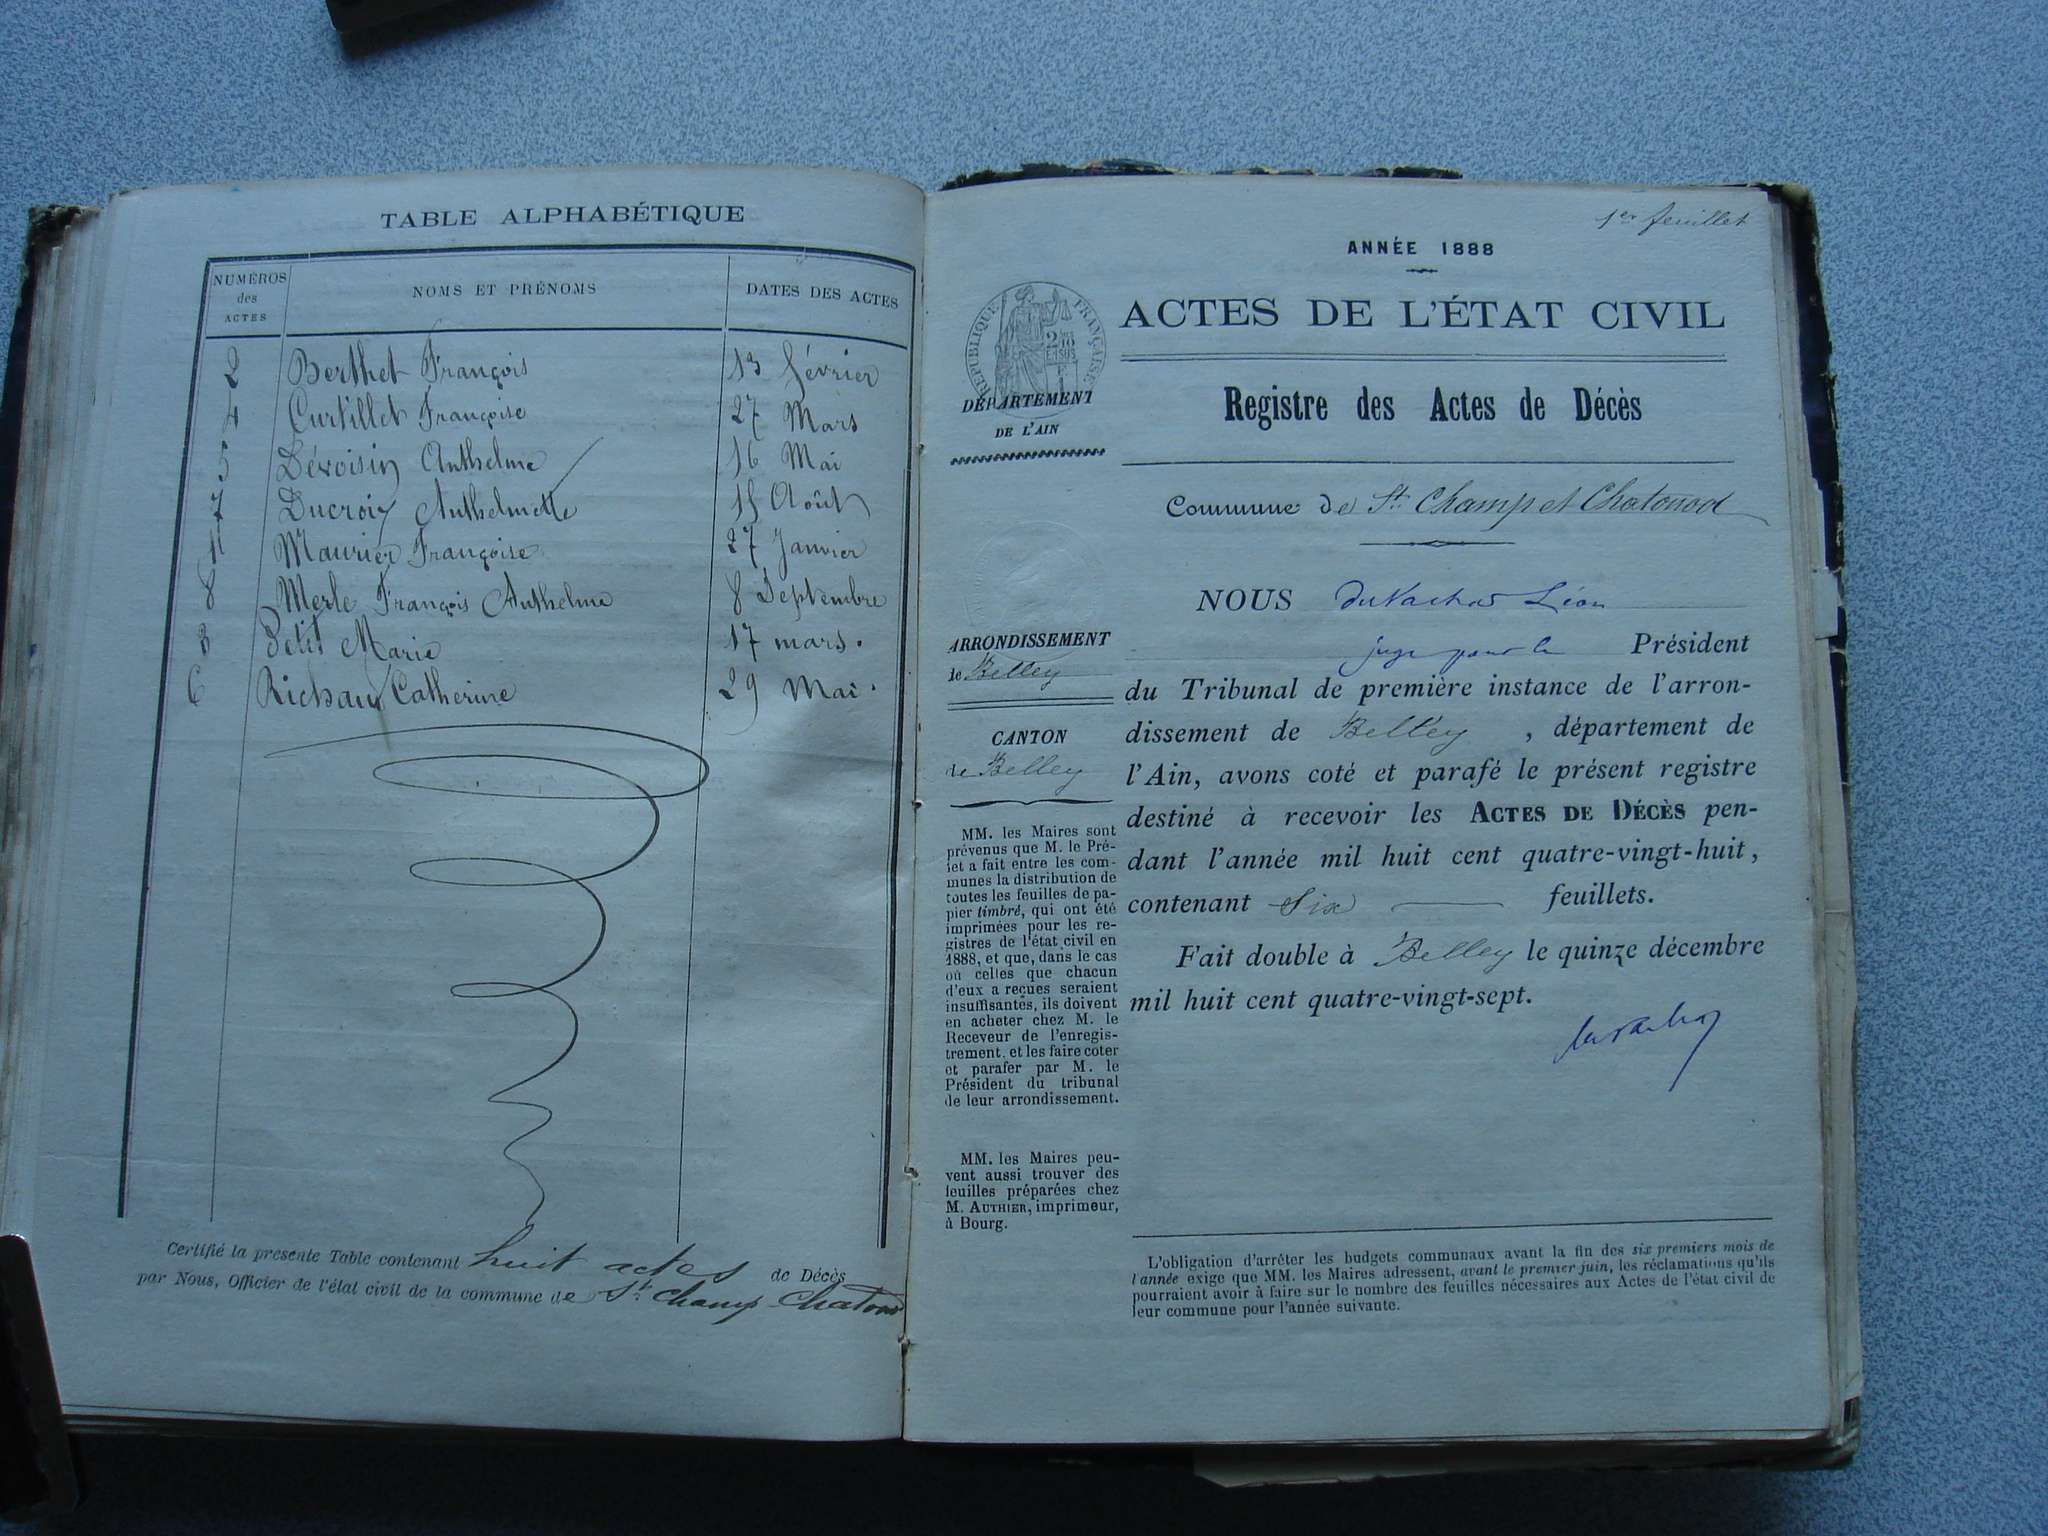 TABLE ALPHABÉTIQUE
NUMÉROS des ACTES | NOMS ET PRÉNOMS | DATES DES ACTES
2 Berthet François 13 février
4 Curtillet Françoise 27 Mars
5 Dévoisin Anthelme 16 Mai
7 Ducroix Anthelmette 15 Août
1 Maurier Françoise 27 Janvier
8 Merle François Anthelme 8 Septembre
3 Petit Marie 17 mars.
6 Richaud Catherine 29 Mai.
Certifié la présente Table contenant huit actes de Décès
par Nous, Officier de l'état civil de la commune de St. Champ-Chatonod
1er feuillet
ANNÉE 1888
ACTES DE L'ÉTAT CIVIL
Registre des Actes de Décès
Commune de St. Champ et Chatonod
RÉPUBLIQUE FRANÇAISE
DÉPARTEMENT
DE L'AIN
ARRONDISSEMENT
de Belley
CANTON
de Belley
MM. les Maires sont
prévenus que M. le Pré-
fet a fait entre les com-
munes la distribution de
toutes les feuilles de pa-
pier timbré, qui ont été
imprimées pour les re-
gistres de l'état civil en
1888, et que, dans le cas
où celles que chacun
d'eux a reçues seraient
insuffisantes, ils doivent
en acheter chez M. le
Receveur de l'enregis-
trement, et les faire coter
et parafer par M. le
Président du tribunal
de leur arrondissement.
MM. les Maires peu-
vent aussi trouver des
feuilles préparées chez
M. AUTHIER, imprimeur,
à Bourg.
NOUS Léon
juge pour le Président
du Tribunal de première instance de l'arron-
dissement de Belley, département de
l'Ain, avons coté et parafé le présent registre
destiné à recevoir les ACTES DE DÉCÈS pen-
dant l'année mil huit cent quatre-vingt-huit,
contenant six feuillets.
Fait double à Belley le quinze décembre
mil huit cent quatre-vingt-sept.
L'obligation d'arrêter les budgets communaux avant la fin des six premiers mois de
l'année exige que MM. les Maires adressent, avant le premier juin, les réclamations qu'ils
pourraient avoir à faire sur le nombre des feuilles nécessaires aux Actes de l'état civil de
leur commune pour l'année suivante.